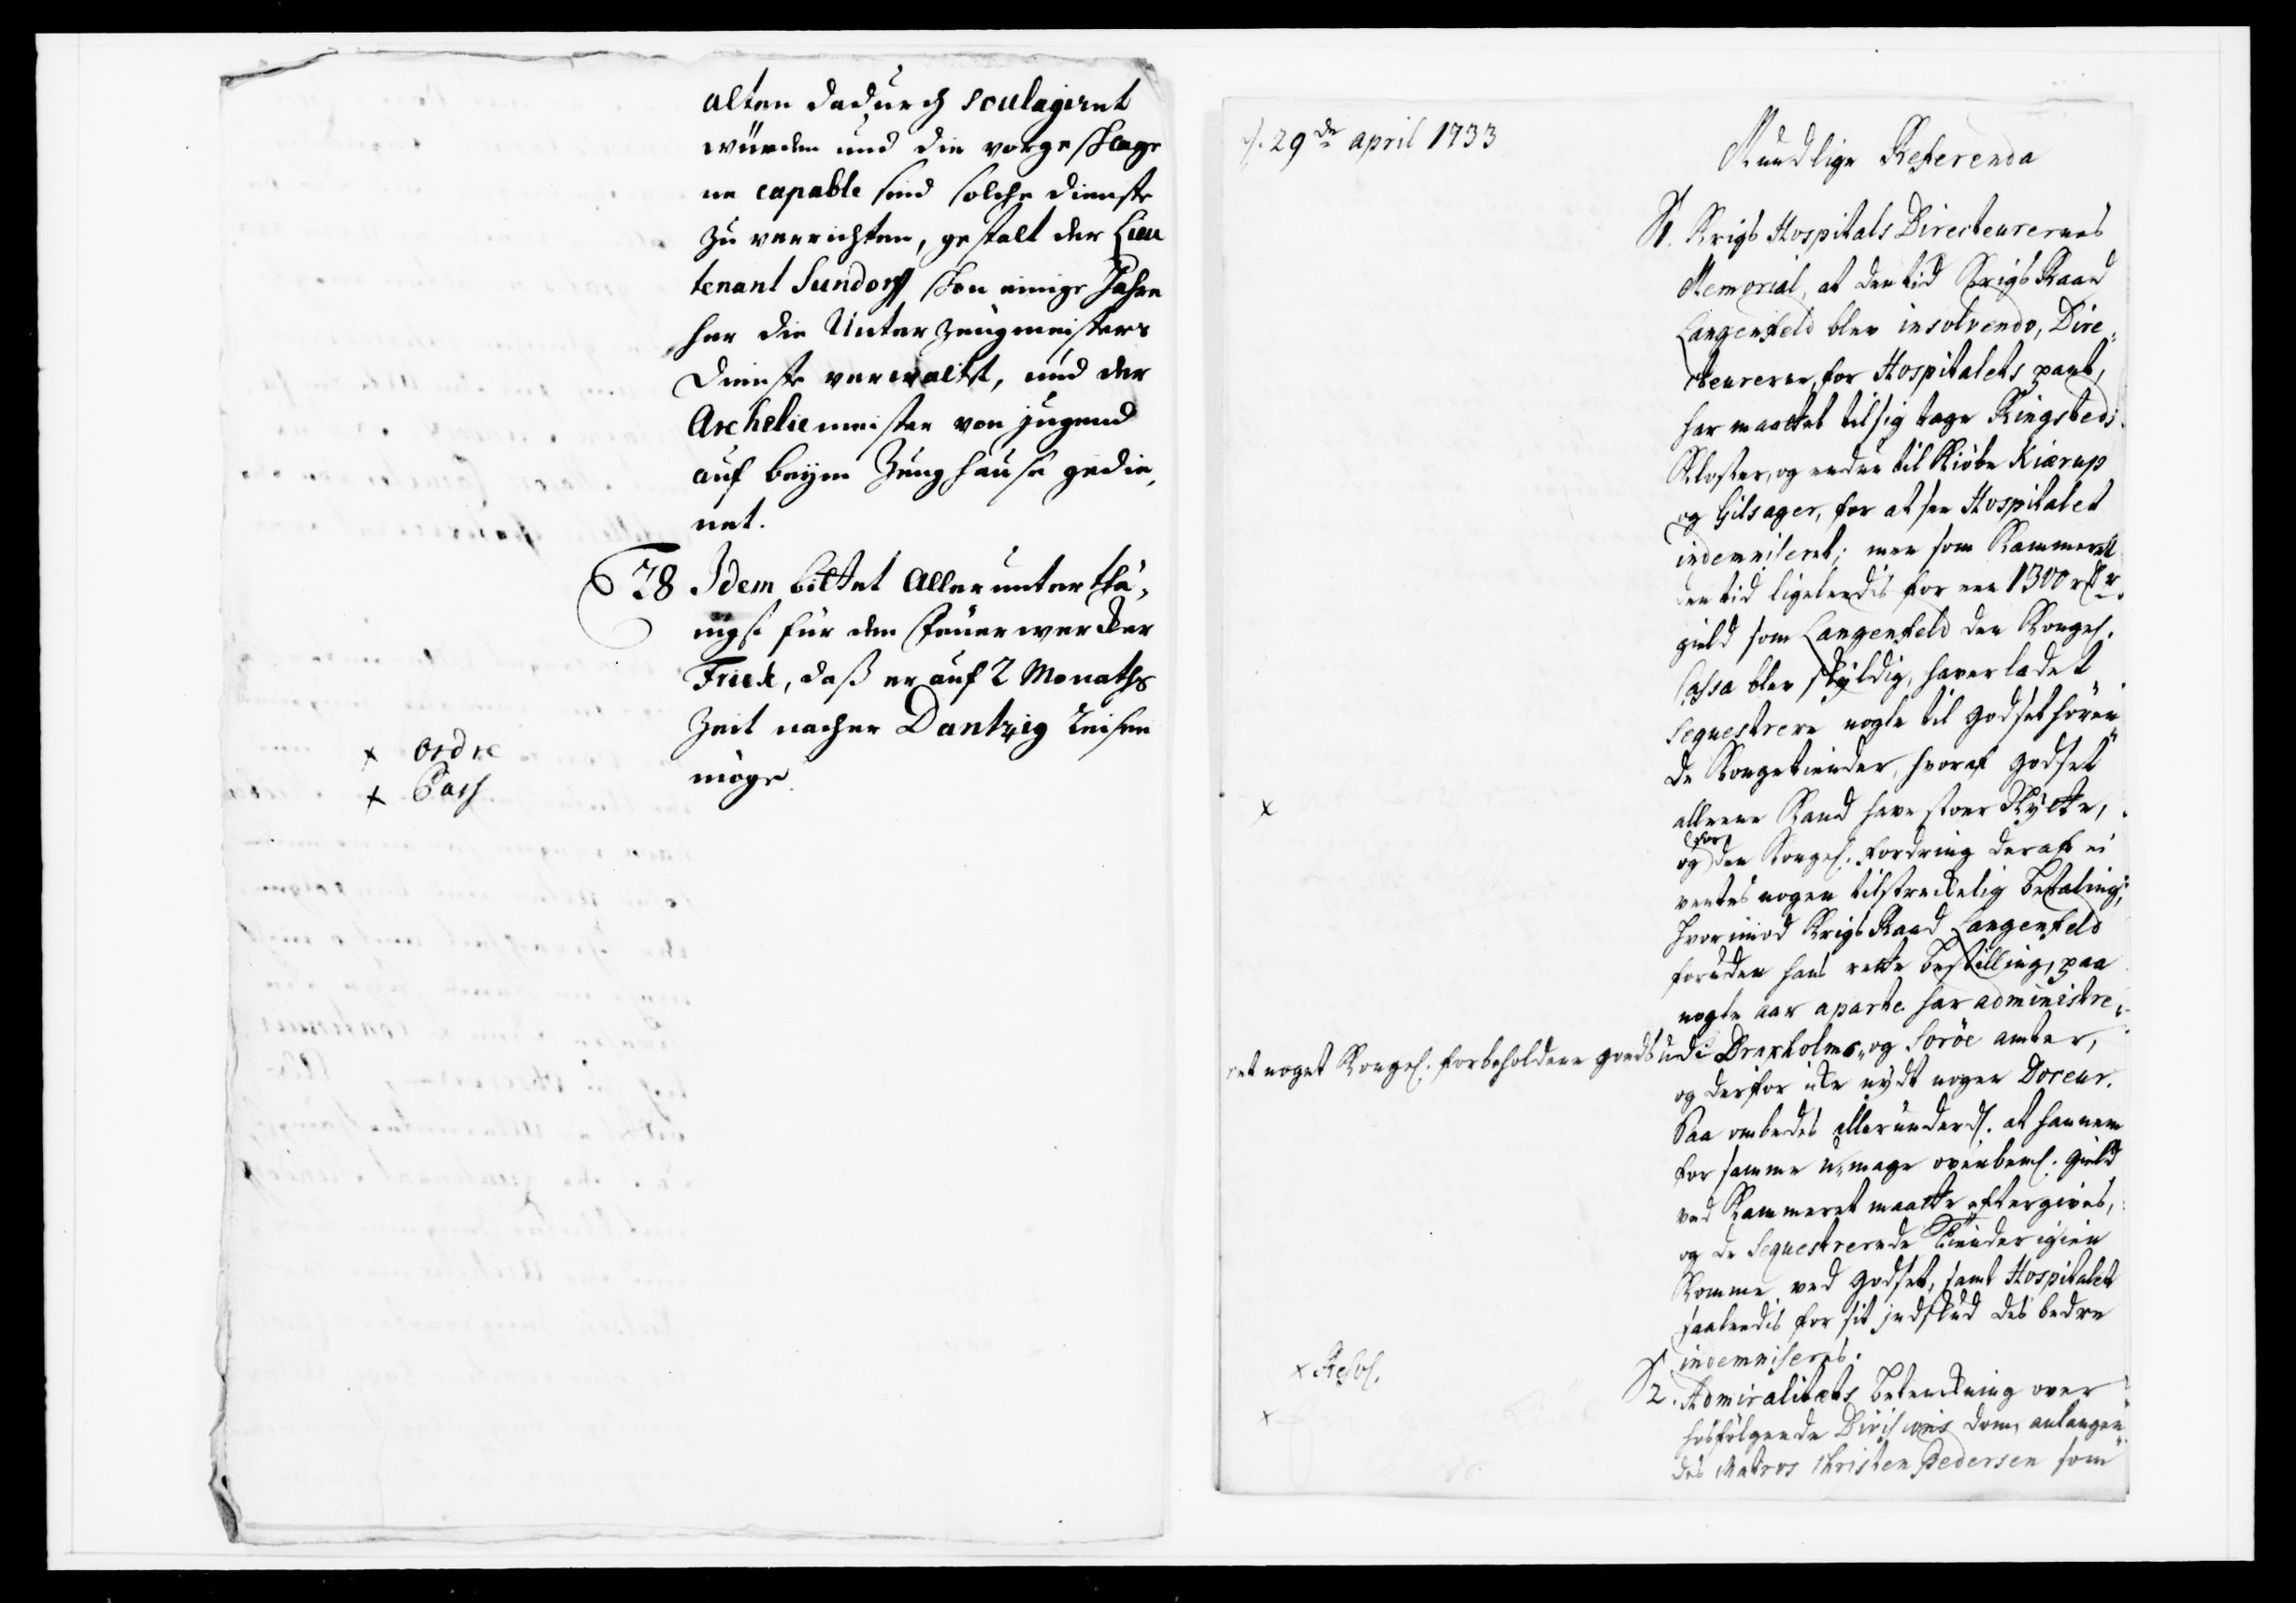 alten dadurch soulagiret
würden und die vorgeschlage
ne capable sind solche dienste
zu verrichten, gestalt der Lieu
tenant Sundorff schon einige Jahre
her die Unter Zeugmeisters
Dienste verwaltet, und der
Archeliemeister von jugend
auf beym Zeughause gedie,
net.
28 Idem bittet allerunterthä,
nigst für den Feuerwercker
Frick, daß er auf 2 Monaths
Zeit nacher Dantzig reisen
möge.
x ordre
x Pass
d. 29de april 1733
Mundlige Referenda
1. Krigs Hospitals Directeurernes
Memorial, at den tid Krigs Raad
Langenfeld blev insolvendo, Dire,
cteurerne, for Hospitalets pant,
har maattet til sig tage Ringsteds
Kloster, og endnu til Kiøbe Kiærup
og Gilsager, for at see Hospitalet
indemniseret; men som Kammeret
den tid ligeleedis for een 1300 rdr
gield som Langenfeld den Kongel.
Cassa blev skyldig, haver ladet
Sequestrere nogle til godset høren
de Kongetiender, hvoraf godset
alleene Kand have stoer Nytte,
for
og den Kongel. fordring deraf ei
ventes nogen tilstreckelig betaling;
hvorimod Krigs Raad Langenfeld
foruden hans rette bestilling, paa
nogle aar aparte har administre,
ret noget Kongel. forbeholdene goeds udi Draxholms, og Sorøe amter,
og derfor icke nydt nogen Doceur.
Saa ombedes allerunderd. at hannem
for samme u-mage ovenbeml. gield
ved Kammeret maatte eftergives,
og de Sequestrerede Tiender igien
Komme ved godset, samt Hospitalet
saaleedis for sit indskud des bedre
indemniseres.
x
x Resol.
x
2. Admiralitets betenckning over
hosfølgende Divisions dom, anlangen
des Matros Christen Pedersen som